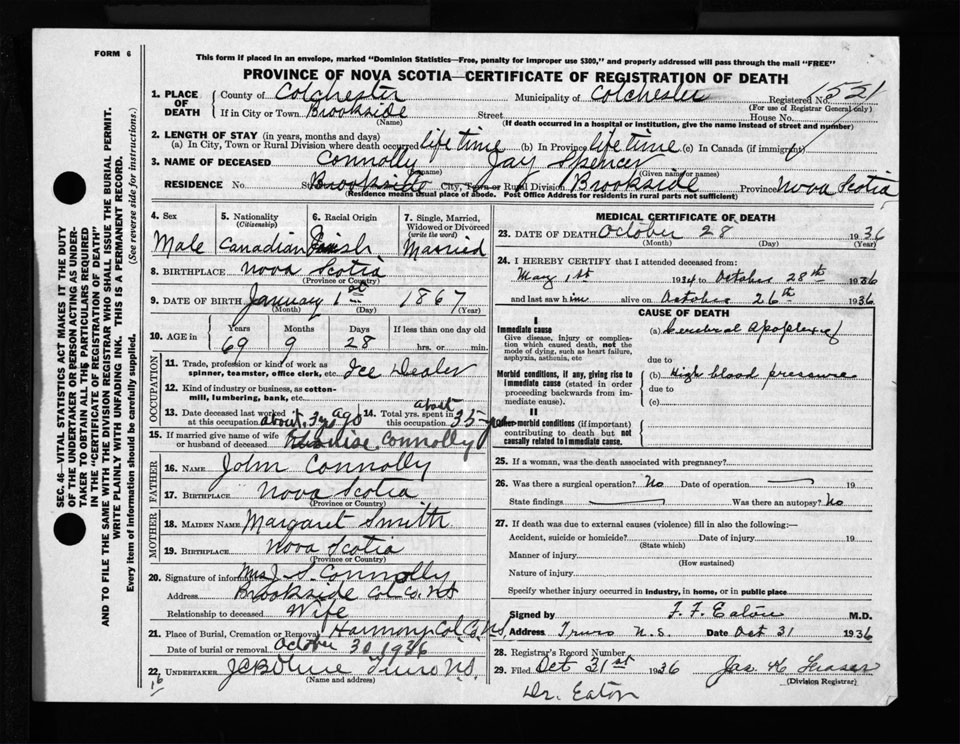 FORM 6
This form if placed in an envelope, marked "Dominion Statistics—Free, penalty for improper use $300," and properly addressed will pass through the mail "FREE"
PROVINCE OF NOVA SCOTIA—CERTIFICATE OF REGISTRATION OF DEATH
SEC. 46—VITAL STATISTICS ACT MAKES IT THE DUTY
OF THE UNDERTAKER OR PERSON ACTING AS UNDER-
TAKER TO OBTAIN ALL THE PARTICULARS REQUIRED
IN THE "CERTIFICATE OF REGISTRATION OF DEATH"
AND TO FILE THE SAME WITH THE DIVISION REGISTRAR WHO SHALL ISSUE THE BURIAL PERMIT.
WRITE PLAINLY WITH UNFADING INK. THIS IS A PERMANENT RECORD.
Every item of information should be carefully supplied. (See reverse side for instructions.)
1. PLACE OF DEATH County of Colchester Municipality of Colchester Registered No. 1521
(For use of Registrar General only)
If in City or Town Brookside Street House No.
(Name) (If death occurred in a hospital or institution, give the name instead of street and number)
2. LENGTH OF STAY (in years, months and days)
(a) In City, Town or Rural Division where death occurred life time (b) In Province life time (c) In Canada (if immigrant)
3. NAME OF DECEASED Connolly Jay Spencer
(Surname) (Given name or names)
RESIDENCE No. St. Brookside City, Town or Rural Division Brookside Province Nova Scotia
(Residence means usual place of abode. Post Office Address for residents in rural parts not sufficient)
4. Sex Male
5. Nationality (Citizenship) Canadian
6. Racial Origin Irish
7. Single, Married, Widowed or Divorced (write the word) Married
8. BIRTHPLACE Nova Scotia
(Province or Country)
9. DATE OF BIRTH January 1st 1867
(Month) (Day) (Year)
10. AGE in Years Months Days If less than one day old
69 9 28 hrs. or min.
OCCUPATION
11. Trade, profession or kind of work as spinner, teamster, office clerk, etc. Ice Dealer
12. Kind of industry or business, as cotton-mill, lumbering, bank, etc.
13. Date deceased last worked at this occupation about 3 yrs ago
14. Total yrs. spent in this occupation about 35
15. If married give name of wife or husband of deceased Connolly
FATHER
16. NAME John Connolly
17. BIRTHPLACE Nova Scotia
(Province or Country)
MOTHER
18. MAIDEN NAME Margaret Smith
19. BIRTHPLACE Nova Scotia
(Province or Country)
20. Signature of informant Mrs J. S. Connolly
Address Brookside Col. Co. N.S
Relationship to deceased Wife
21. Place of Burial, Cremation or Removal Harmony Col Co. N.S.
Date of burial or removal October 30 1936
22. UNDERTAKER Truro N.S.
(Name and address)
16
MEDICAL CERTIFICATE OF DEATH
23. DATE OF DEATH October 28 1936
(Month) (Day) (Year)
24. I HEREBY CERTIFY that I attended deceased from:
May 1st 1934 to October 28th 1936
and last saw him alive on October 26th 1936
CAUSE OF DEATH
I
Immediate cause
Give disease, injury or complication which caused death, not the mode of dying, such as heart failure, asphyxia, asthenia, etc
(a) Cerebral Apoplexy
due to
Morbid conditions, if any, giving rise to immediate cause (stated in order proceeding backwards from immediate cause).
(b) High blood pressure
due to
(c)
II
Other morbid conditions (if important) contributing to death but not causally related to immediate cause.
25. If a woman, was the death associated with pregnancy?
26. Was there a surgical operation? No Date of operation 19
State findings Was there an autopsy? No
27. If death was due to external causes (violence) fill in also the following:—
Accident, suicide or homicide? Date of injury 19
(State which)
Manner of injury
(How sustained)
Nature of injury
Specify whether injury occurred in industry, in home, or in public place
Signed by F. F. Eaton M.D.
Address Truro N.S. Date Oct 31 1936
28. Registrar's Record Number
29. Filed Oct 31st 1936 Jas K Fraser
(Division Registrar)
Dr. Eaton